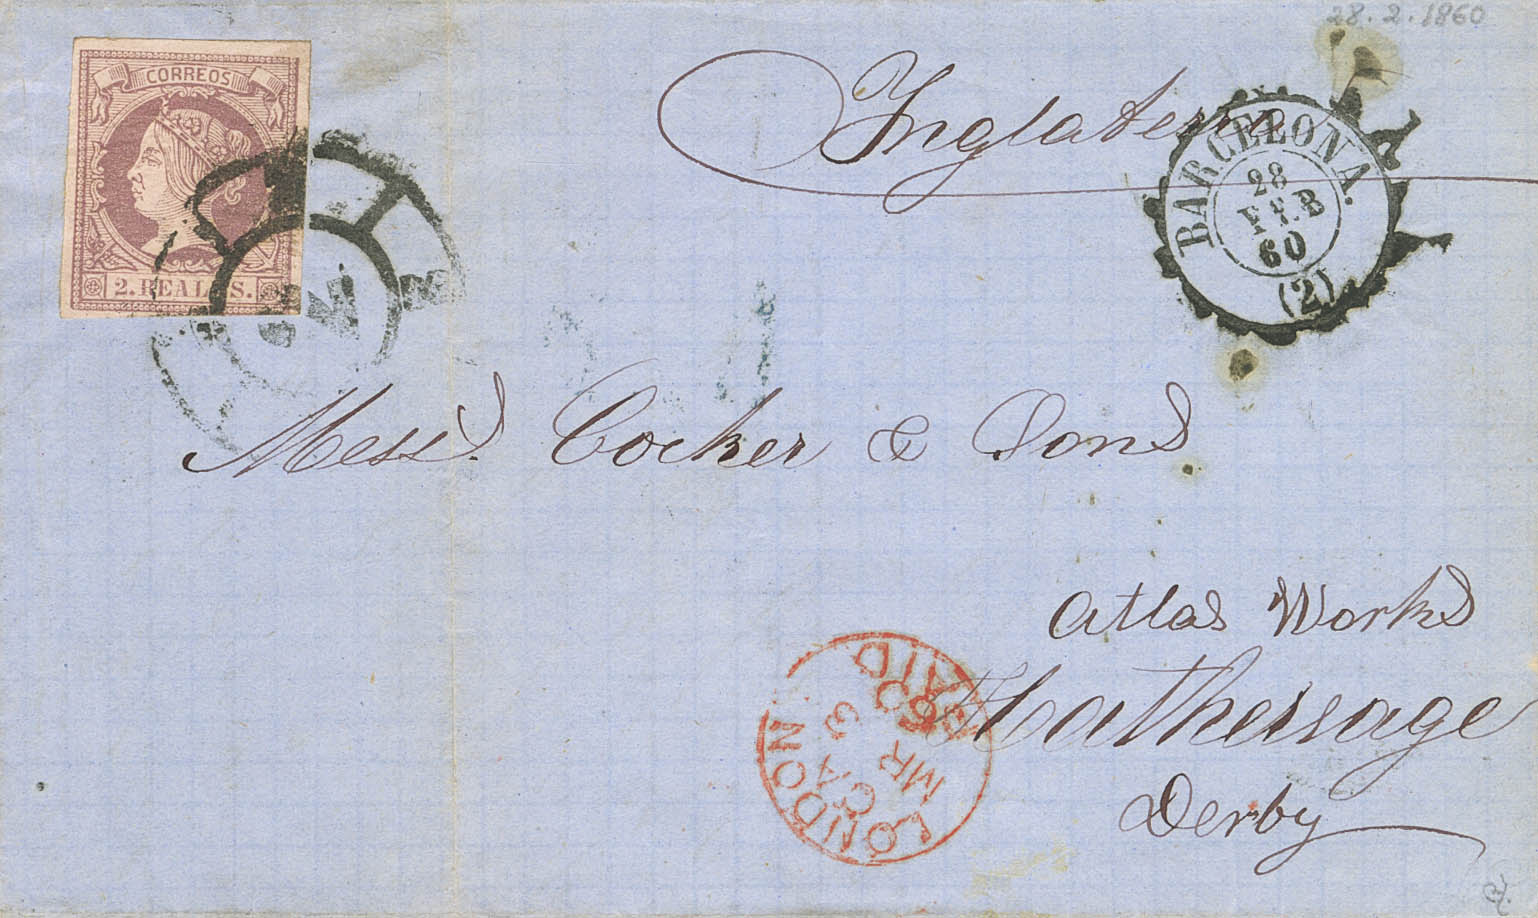 28.2.1860
CORREOS
2. REALES.
Inglaterra
BARCELONA.
28
FEB
60
(2)
Mess.rs Cocker & Sons
Atlas Works
Hathersage
Derby
LONDON
CA
MR
3
60
PAID